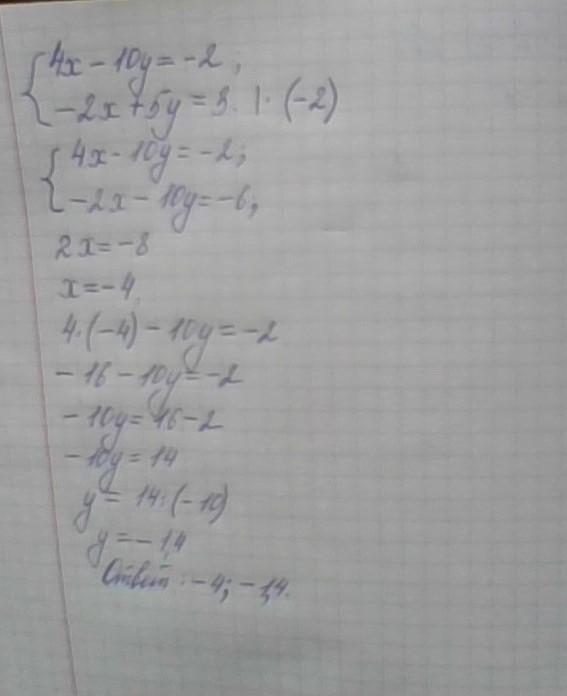 4x - 10y = -2;
-2x + 5y = 3. | · (-2)
4x - 10y = -2;
-2x - 10y = -6;
2x = -8
x = -4.
4·(-4) - 10y = -2
-16 - 10y = -2
-10y = 16-2
-10y = 14
y = 14:(-10)
y = -1,4
Ответ: -4; -1,4.